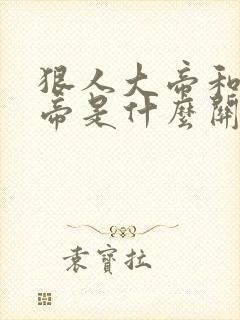 狠人大帝和
帝是什麼關
袁寶拉